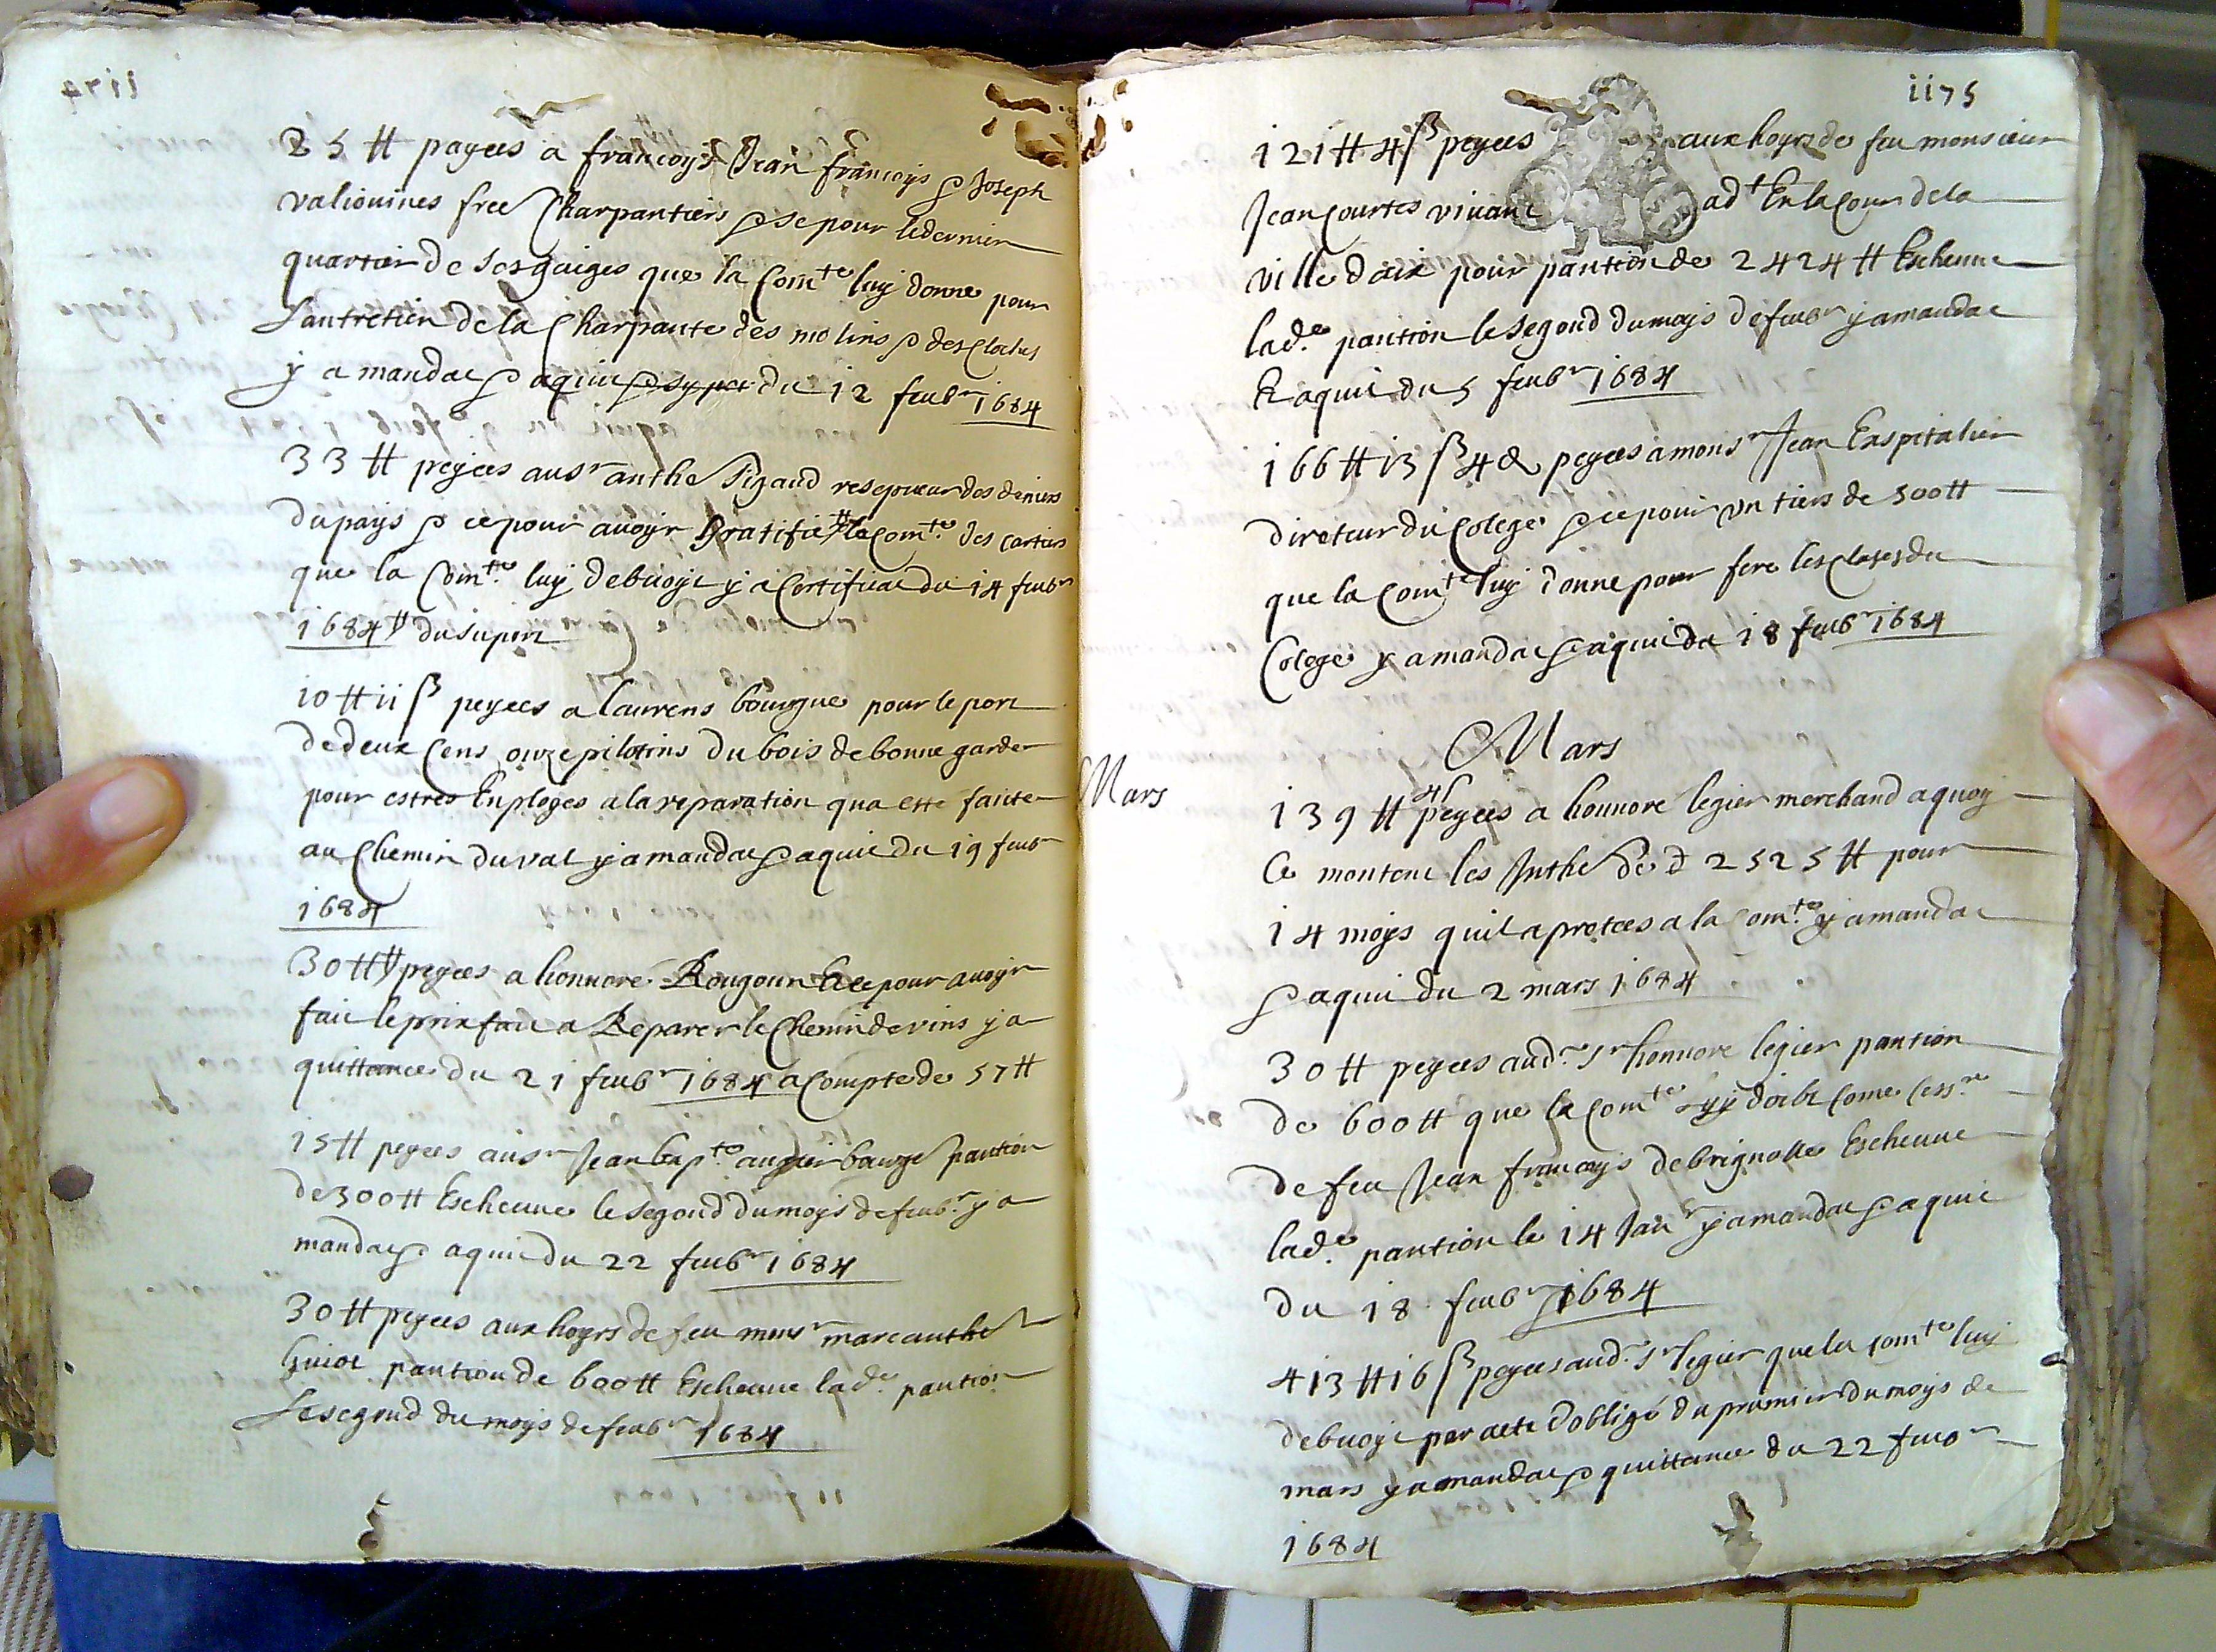 25 ₶ payees a francoys Jean francoys & Joseph
valiouines free Charpantiers & se pour le dernier
quartier de ses gaiges que la Com.te luy donne pour
l'antretien de la Charpante des molins & des Cloches
y a mandat & aquit du 12 feubr 1684
33 ₶ peyees au sr anthe Sigaud resepueur des deniers
du pays & ce pour avoyr Gratifie la Com.te des cartiers
que la Com.te luy debuoyt y a Certificat du 14 feubr
1684 du suport
10 ₶ 11 ß peyees a laurens bourgue pour le port
de deux Cens onze pilotins du bois de bonne garde
pour estres Enploges a la reparation qua este faite
au Chemin du val y a mandat & aquit du 19 feubr
1684
30 ₶ peyees a honnore Rougoun E ce pour auoyr
fait le prix fait a Reparer le Chemin de vins y a
quittance du 21 feubr 1684 a Compte de 57 ₶
15 ₶ peyees au sr Jean bap.te augier bauge pantion
de 300 ₶ Escheuue le segond du moys de feubr y a
mandat & aquit du 22 feubr 1684
30 ₶ peyees aux hoyrs de feu monsr marc anthe
Guiot pantion de 600 ₶ Escheuue lad.e pantion
Le segond du moys de feubr 1684
1175
121 ₶ 4 ß peyees aux hoyrs de feu monsieur
Jean Courtes viuant ad.t En la Cour de la
ville d'aix pour pantion de 2424 ₶ Escheuue
lad.e pantion le segond du moys de feubr y a mandat
E aquit du 5 feubr 1684
166 ₶ 13 ß 4 d peyees a monsr Jean Enspitalier
direteur du Colege & ce pour vn tiers de 500 ₶
que la Com.te luy donne pour fere les Clases du
Colege y a mandat & aquit du 18 feubr 1684
Mars
Mars
139 ₶ 4ß peyees a honnore legier merchand a quoy
Ce montent les Inthe de 2525 ₶ pour
14 moys quil a pretees a la Com.te y a mandat
& aquit du 2 mars 1684
30 ₶ peyees aud.t Sr honnore legier pantion
de 600 ₶ que la Com.te luy doibt Come Cessre
de feu Jean francoys de brignolle Escheuue
lad.e pantion le 14 Janr y a mandat & aquit
du 18 feubr 1684
413 ₶ 16 ß peyees aud.t Sr legier que la Com.te luy
debuoyt par acte d'obligé du premier du moys de
mars y a mandat & quittance du 22 feubr
1684